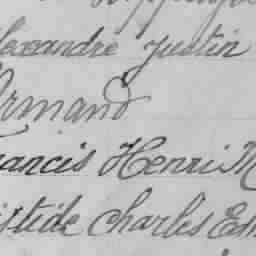 lexandre Justin
Armand
rancis Henri M
istide Charles Em